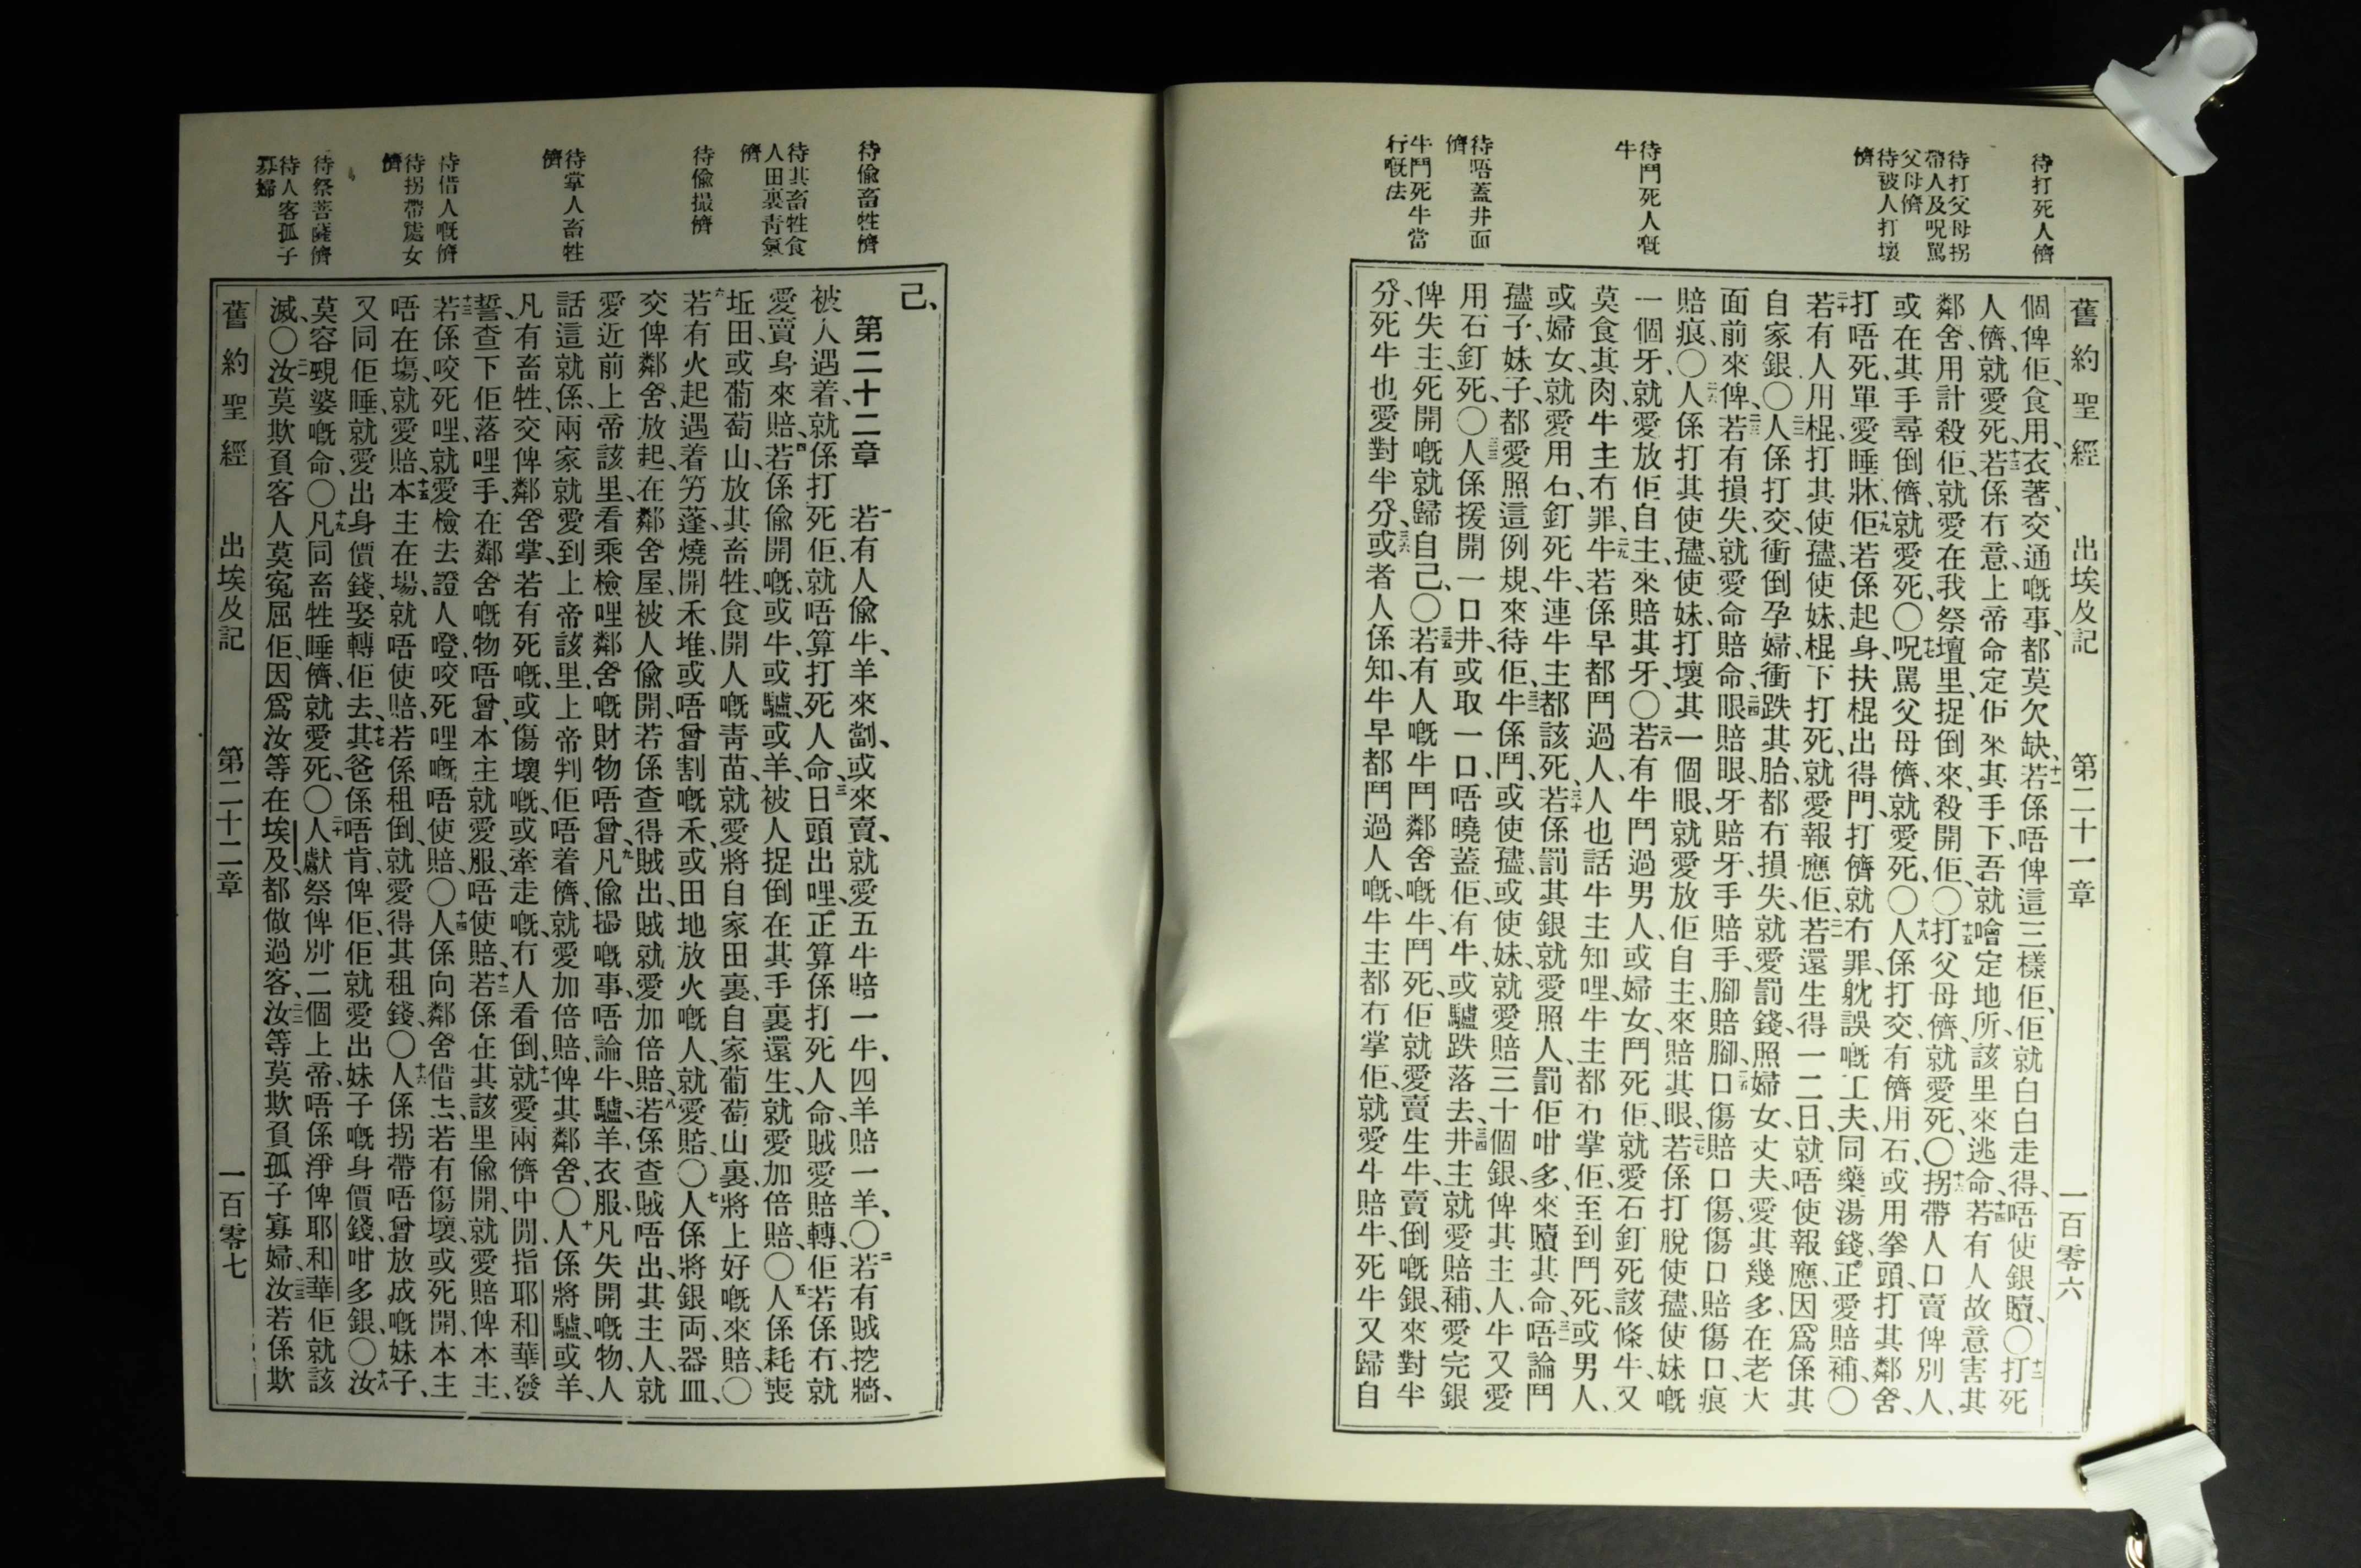 待打死人儕
待打父母拐
帶人及呪罵
父母儕
待被人打壞
儕
待鬥死人嘅
牛
待唔蓋井面
儕
牛鬥死牛當
行嘅法
舊約聖經 出埃及記 第二十一章 一百零六
個俾佢、食用、衣著、交通嘅事、都莫欠缺、十一若係唔俾這三樣佢、佢就白白走得、唔使銀贖、〇十二打死
人儕、就愛死、十三若係冇意、上帝命定佢來其手下、吾就噲定地所、該里來逃命、十四若有人故意害其
鄰舍、用計殺佢、就愛在我祭壇里捉倒來、殺開佢、〇十五打父母儕、就愛死、〇十六拐帶人口賣俾別人、
或在其手尋倒儕、就愛死、〇十七呪罵父母儕、就愛死、〇十八人係打交、有儕用石、或用拳頭、打其鄰舍、
打唔死、單愛睡牀、十九佢若係起身、扶棍出得門、打儕就冇罪、躭誤嘅工夫、同藥湯錢、正愛賠補、〇
二十若有人用棍打其使孻使妹、棍下打死、就愛報應佢、二一若還生得一二日、就唔使報應、因爲係其
自家銀、〇二二人係打交、衝倒孕婦、衝跌其胎、都冇損失、就愛罰錢、照婦女丈夫、愛其幾多、在老大
面前來俾、二三若有損失、就愛命賠命、二四眼賠眼、牙賠牙、手賠手、腳賠腳、二五口傷賠口傷、傷口賠傷口、痕
賠痕、〇二六人係打其使孻使妹、打壞其一個眼、就愛放佢自主、來賠其眼、二七若係打脫使孻使妹嘅
一個牙、就愛放佢自主、來賠其牙、〇二八若有牛鬥過男人、或婦女、鬥死佢、就愛石釘死該條牛、又
莫食其肉、牛主冇罪、二九牛若係早都鬥過人、人也話牛主知哩、牛主都冇掌佢、至到鬥死、或男人、
或婦女、就愛用石釘死牛、連牛主都該死、三十若係罰其銀、就愛照人罰佢咁多、來贖其命、三一唔論鬥
孻子、妹子、都愛照這例規、來待佢、三二牛係鬥、或使孻、或使妹、就愛賠三十個銀、俾其主人、牛又愛
用石釘死、〇三三人係援開一口井、或取一口、唔曉蓋佢、有牛、或驢跌落去、三四井主就愛賠補、愛完銀
俾失主、死開嘅就歸自己、〇三五若有人嘅牛鬥鄰舍嘅牛、鬥死、佢就愛賣生牛、賣倒嘅銀、來對半
分、死牛也愛對半分、三六或者人係知、牛早都鬥過人嘅、牛主都冇掌佢、就愛牛賠牛、死牛又歸自
待偸畜牲儕
待其畜牲食
人田裏靑氣
儕
待偸撮儕
待掌人畜牲
儕
待借人嘅儕
待拐帶處女
儕
待祭菩薩儕
待人客孤子
寡婦
己、
第二十二章 一若有人偸牛、羊來劏、或來賣、就愛五牛賠一牛、四羊賠一羊、〇二若有賊挖牆、
被人遇着、就係打死佢、就唔算打死人命、三日頭出哩、正算係打死人命、賊愛賠轉、佢若係冇、就
愛賣身來賠、四若係偸開嘅、或牛、或驢、或羊、被人捉倒在其手裏、還生、就愛加倍賠、〇五人係耗喪
坵田、或葡萄山、放其畜牲、食開人嘅靑苗、就愛將自家田裏、自家葡萄山裏、將上好嘅來賠、〇
六若有火起、遇着竻蓬、燒開禾堆、或唔曾割嘅禾、或田地、放火嘅人、就愛賠、〇七人係將銀両、器皿、
交俾鄰舍、放起、在鄰舍屋、被人偸開、若係查得賊出、賊就愛加倍賠、八若係查賊唔出、其主人就
愛近前上帝該里、看乘檢哩鄰舍嘅財物唔曾、九凡偸撮嘅事、唔論牛、驢、羊、衣服、凡失開嘅物、人
話這就係、兩家就愛到上帝該里、上帝判佢唔着儕、就愛加倍賠、俾其鄰舍、〇十人係將驢、或羊、
凡有畜牲、交俾鄰舍掌、若有死嘅、或傷壞嘅、或牽走嘅、冇人看倒、十一就愛兩儕中閒、指耶和華發
誓、查下佢落哩手、在鄰舍嘅物唔曾、本主就愛服、唔使賠、十二若係在其該里偸開、就愛賠俾本主、
十三若係咬死哩、就愛檢去證人噔、咬死哩嘅、唔使賠、〇十四人係向鄰舍借去、若有傷壞、或死開、本主
唔在塲、就愛賠、十五本主在塲、就唔使賠、若係租倒、就愛得其租錢、〇十六人係拐帶唔曾放成嘅妹子、
又同佢睡、就愛出身價錢、娶轉佢去、十七其爸係唔肯俾佢、佢就愛出妹子嘅身價錢咁多銀、〇十八汝
莫容覡婆嘅命、〇十九凡同畜牲睡儕、就愛死、〇二十人獻祭俾別二個上帝、唔係淨俾耶和華、佢就該
滅、〇二一汝莫欺負客人、莫寃屈佢、因爲汝等在埃及、都做過客、二二汝等莫欺負孤子寡婦、二三汝若係欺
舊約聖經 出埃及記 第二十二章 一百零七